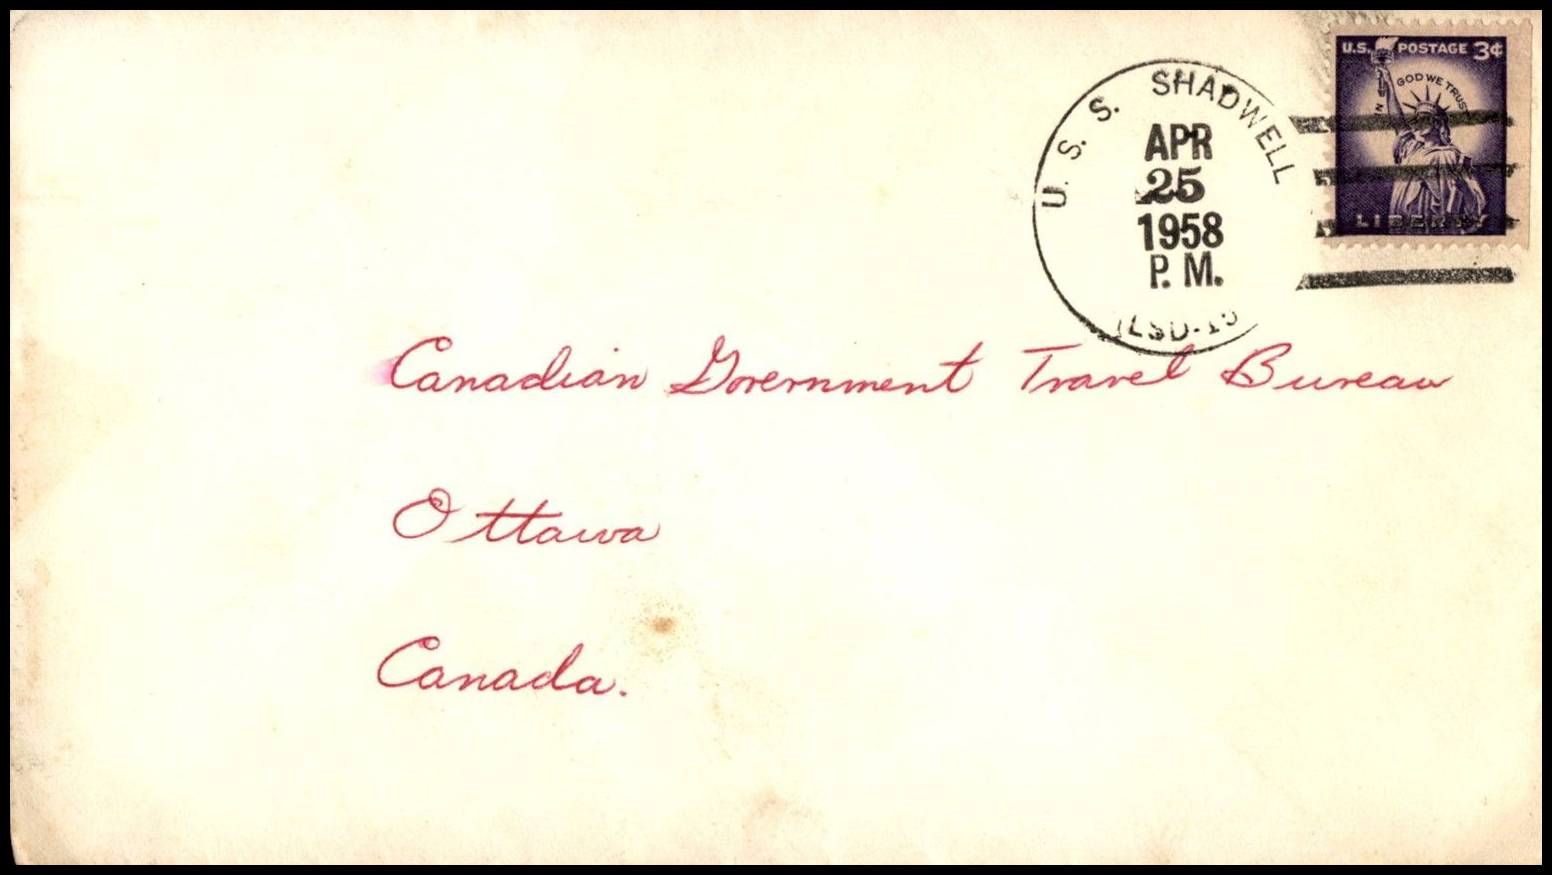 U.S. POSTAGE 3¢
GOD WE TRUST
LIBERTY
U. S. S. SHADWELL
APR
25
1958
P. M.
Canadian Government Travel Bureau
Ottawa
Canada.